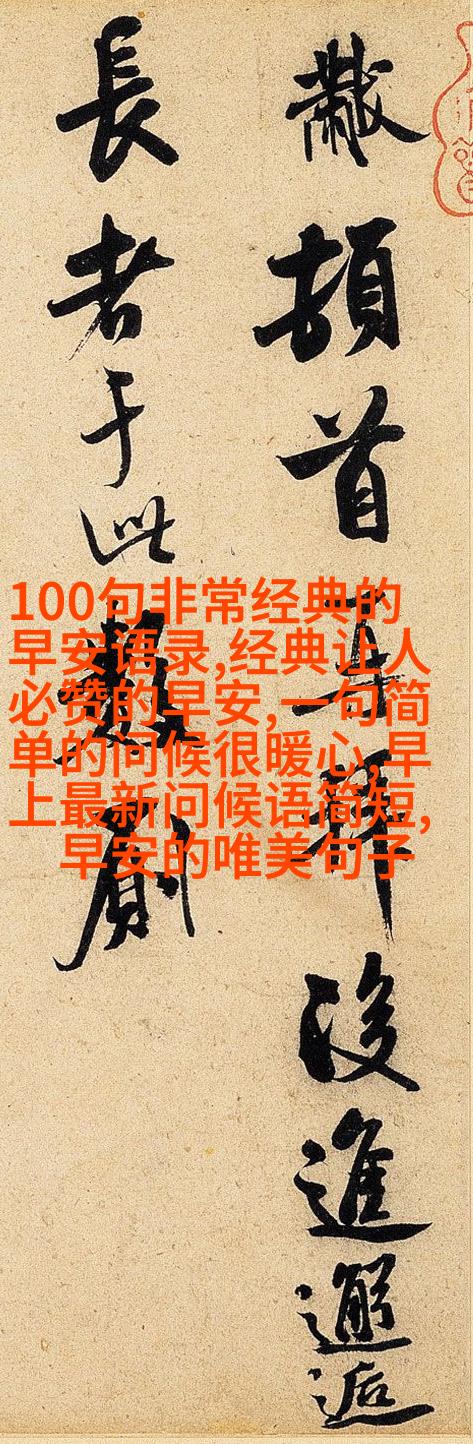 黻頓首再拜後進邂逅
長者于此數厠
100句非常经典的
早安语录,经典让人
必赞的早安,一句简
单的问候很暖心,早
上最新问候语简短,
早安的唯美句子